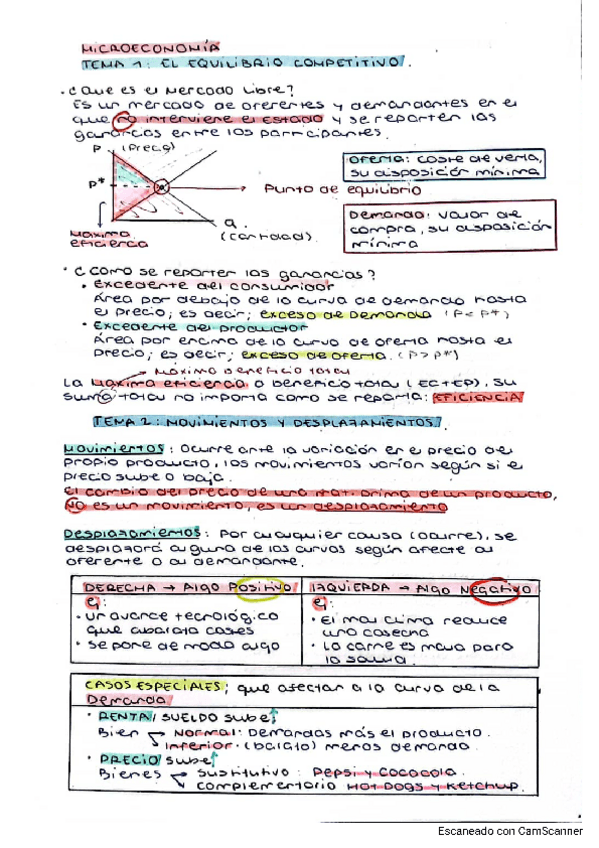 MICROECONOMÍA
TEMA 1: EL EQUILIBRIO COMPETITIVO.
· ¿Que es el Mercado Libre?
Es un mercado de oferentes y demandantes en el
que no interviene el estado y se reparten las
ganancias entre los participantes.
P (Precio)
P*
Q
(Cantidad)
Máxima
eficiencia
Punto de equilibrio
Oferta: coste de venta,
su disposición mínima
Demanda: valor de
compra, su disposición
mínima
· ¿Como se reparten las ganancias?
• Excedente del consumidor
Área por debajo de la curva de demanda hasta
el precio; es decir; exceso de Demanda (P<P*)
• Excedente del productor
Área por encima de la curva de oferta hasta el
precio; es decir; exceso de oferta. (P>P*)
Máximo beneficio total
La Maxima eficiencia o beneficio total (EC+EP), su
suma total no importa como se reparta: EFICIENCIA
TEMA 2: MOVIMIENTOS Y DESPLAZAMIENTOS.
Movimientos: Ocurre ante la variación en el precio del
propio producto, los movimientos varían según si el
precio sube o baja.
El cambio del precio de una mat. prima de un producto,
NO es un movimiento, es un desplazamiento
Desplazamientos: Por cualquier causa (ocurre), se
desplazará alguna de las curvas según afecte al
oferente o al demandante.
DERECHA → Algo Positivo
ej:
• Un avance tecnológico
que abarata costes
• Se pone de moda algo
IZQUIERDA → Algo Negativo
ej:
• El mal clima reduce
una cosecha
• La carne es mala para
la salud.
CASOS ESPECIALES; que afectan a la curva de la
Demanda
• RENTA/SUELDO sube↑
Bien → Normal: Demandas más el producto.
→ Inferior (barato) menos demanda.
• PRECIO sube↑
Bienes → Sustitutivo: Pepsi y Cocacola.
→ Complementario Hot Dogs y Ketchup.
Escaneado con CamScanner